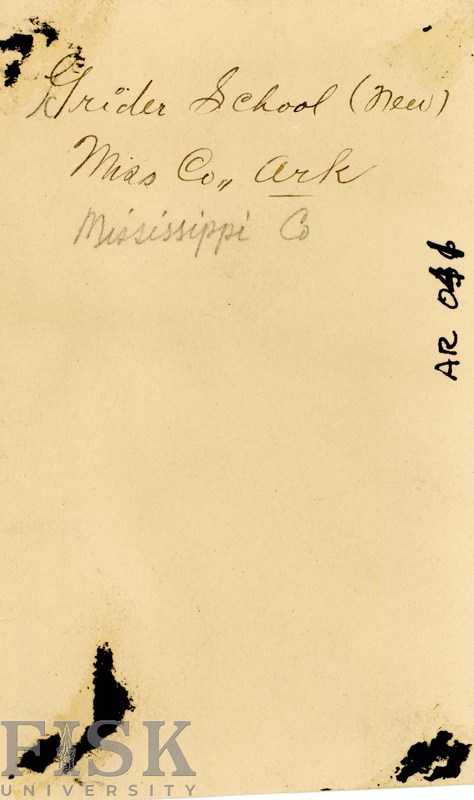 Grider School (new)
Miss Co,, Ark
Mississippi Co
AR
FISK
UNIVERSITY